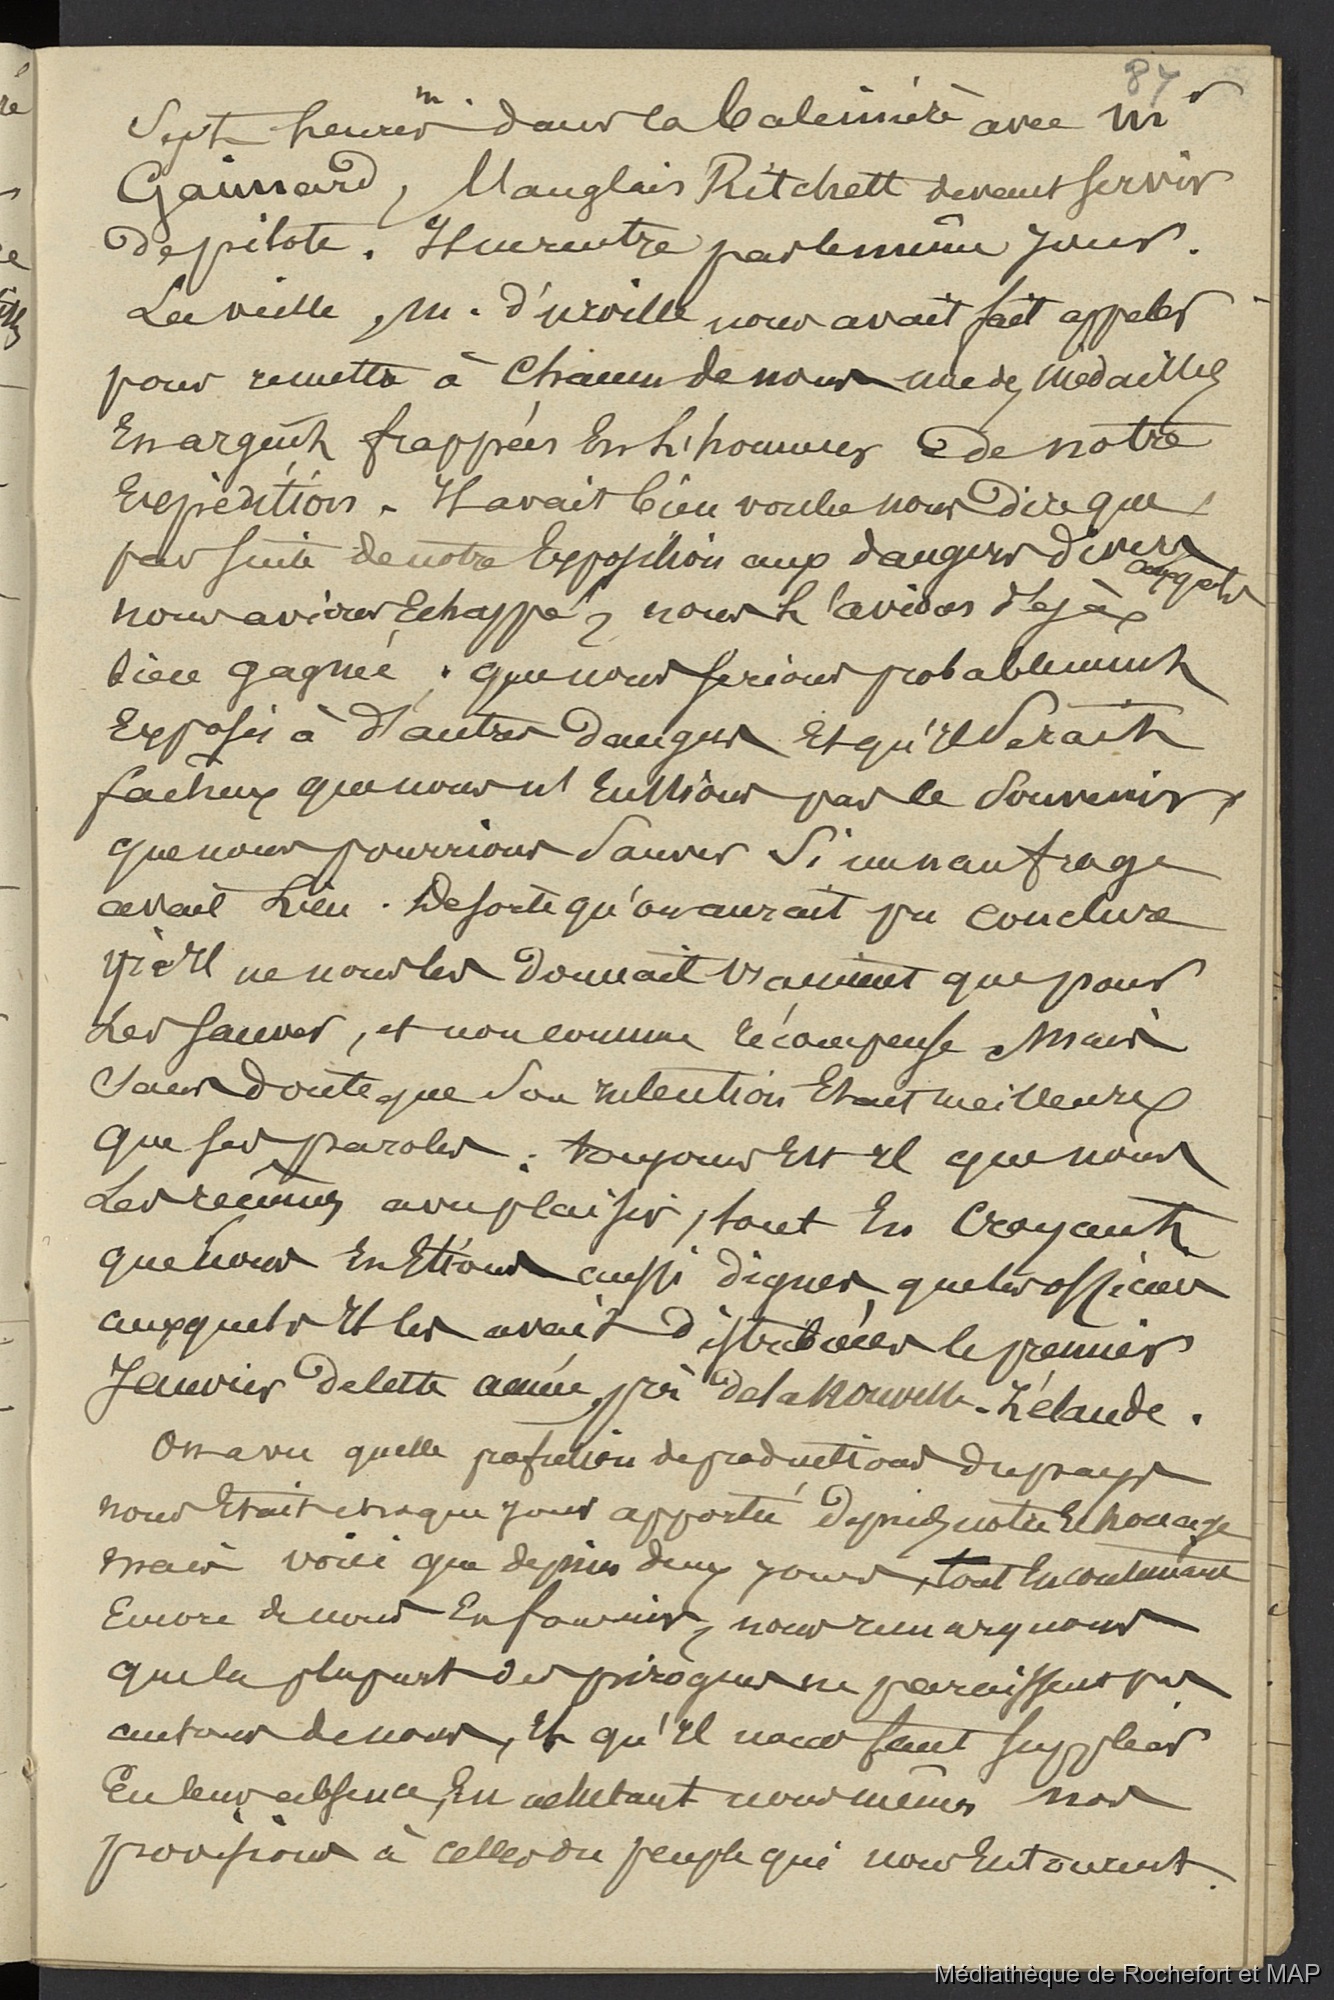 87
Sept heures m. dans la baleinière avec Mr
Gaimard, l'anglais Ritchett devant servir
de pilote. Il ne rentre pas le même jour.
La veille, M. d'urville nous avait fait appeler
pour remettre à Chacun de nous une des Médailles
En argent frappées En l'honneur de notre
Expédition. Il avait bien voulu nous dire que
par suite de notre Exposition aux dangers divers
auxquels
nous avions Echappé, nous l'avions déjà
bien gagné; que nous serions probablement
Exposés à d'autres dangers Et qu'Il Serait
facheux que nous n'Eussions pas le Souvenir,
que nous pourrions Sauver Si un naufrage
avait Lieu. De sorte qu'on aurait pu conclure
qu'Il ne nous les donnait vraiment que pour
Les sauver, et non comme récompense. Mais
Sans doute que Son intention Etait meilleure
que ses paroles; toujours Est-Il que nous
Les reçûmes avec plaisir, tout En Croyant
que nous En Etions aussi dignes que les officiers
auxquels Il les avait distribuées le premier
Janvier de cette année, près de la Nouvelle-Zélande.
On a vu quelle profusion de productions du pays
nous Etait chaque jour apporté depuis notre Echouage
mais voici que depuis deux jours, tout En continuant
Encore de nous En fournir, nous remarquons
que la plupart des pirogues ne paraissent pas
autour de nous, Et qu'Il nous faut suppléer
En leur absence, En achetant nous mêmes nos
provisions à celles du peuple qui nous Entourent.
Médiathèque de Rochefort et MAP